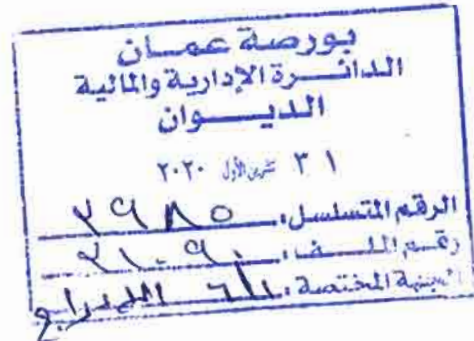 بورصة عمان
الدائرة الإدارية والمالية
الديوان
٣١ تشرين الأول ٢٠٢٠
الرقم المتسلسل:
رقم الملف:
الجهة المختصة: